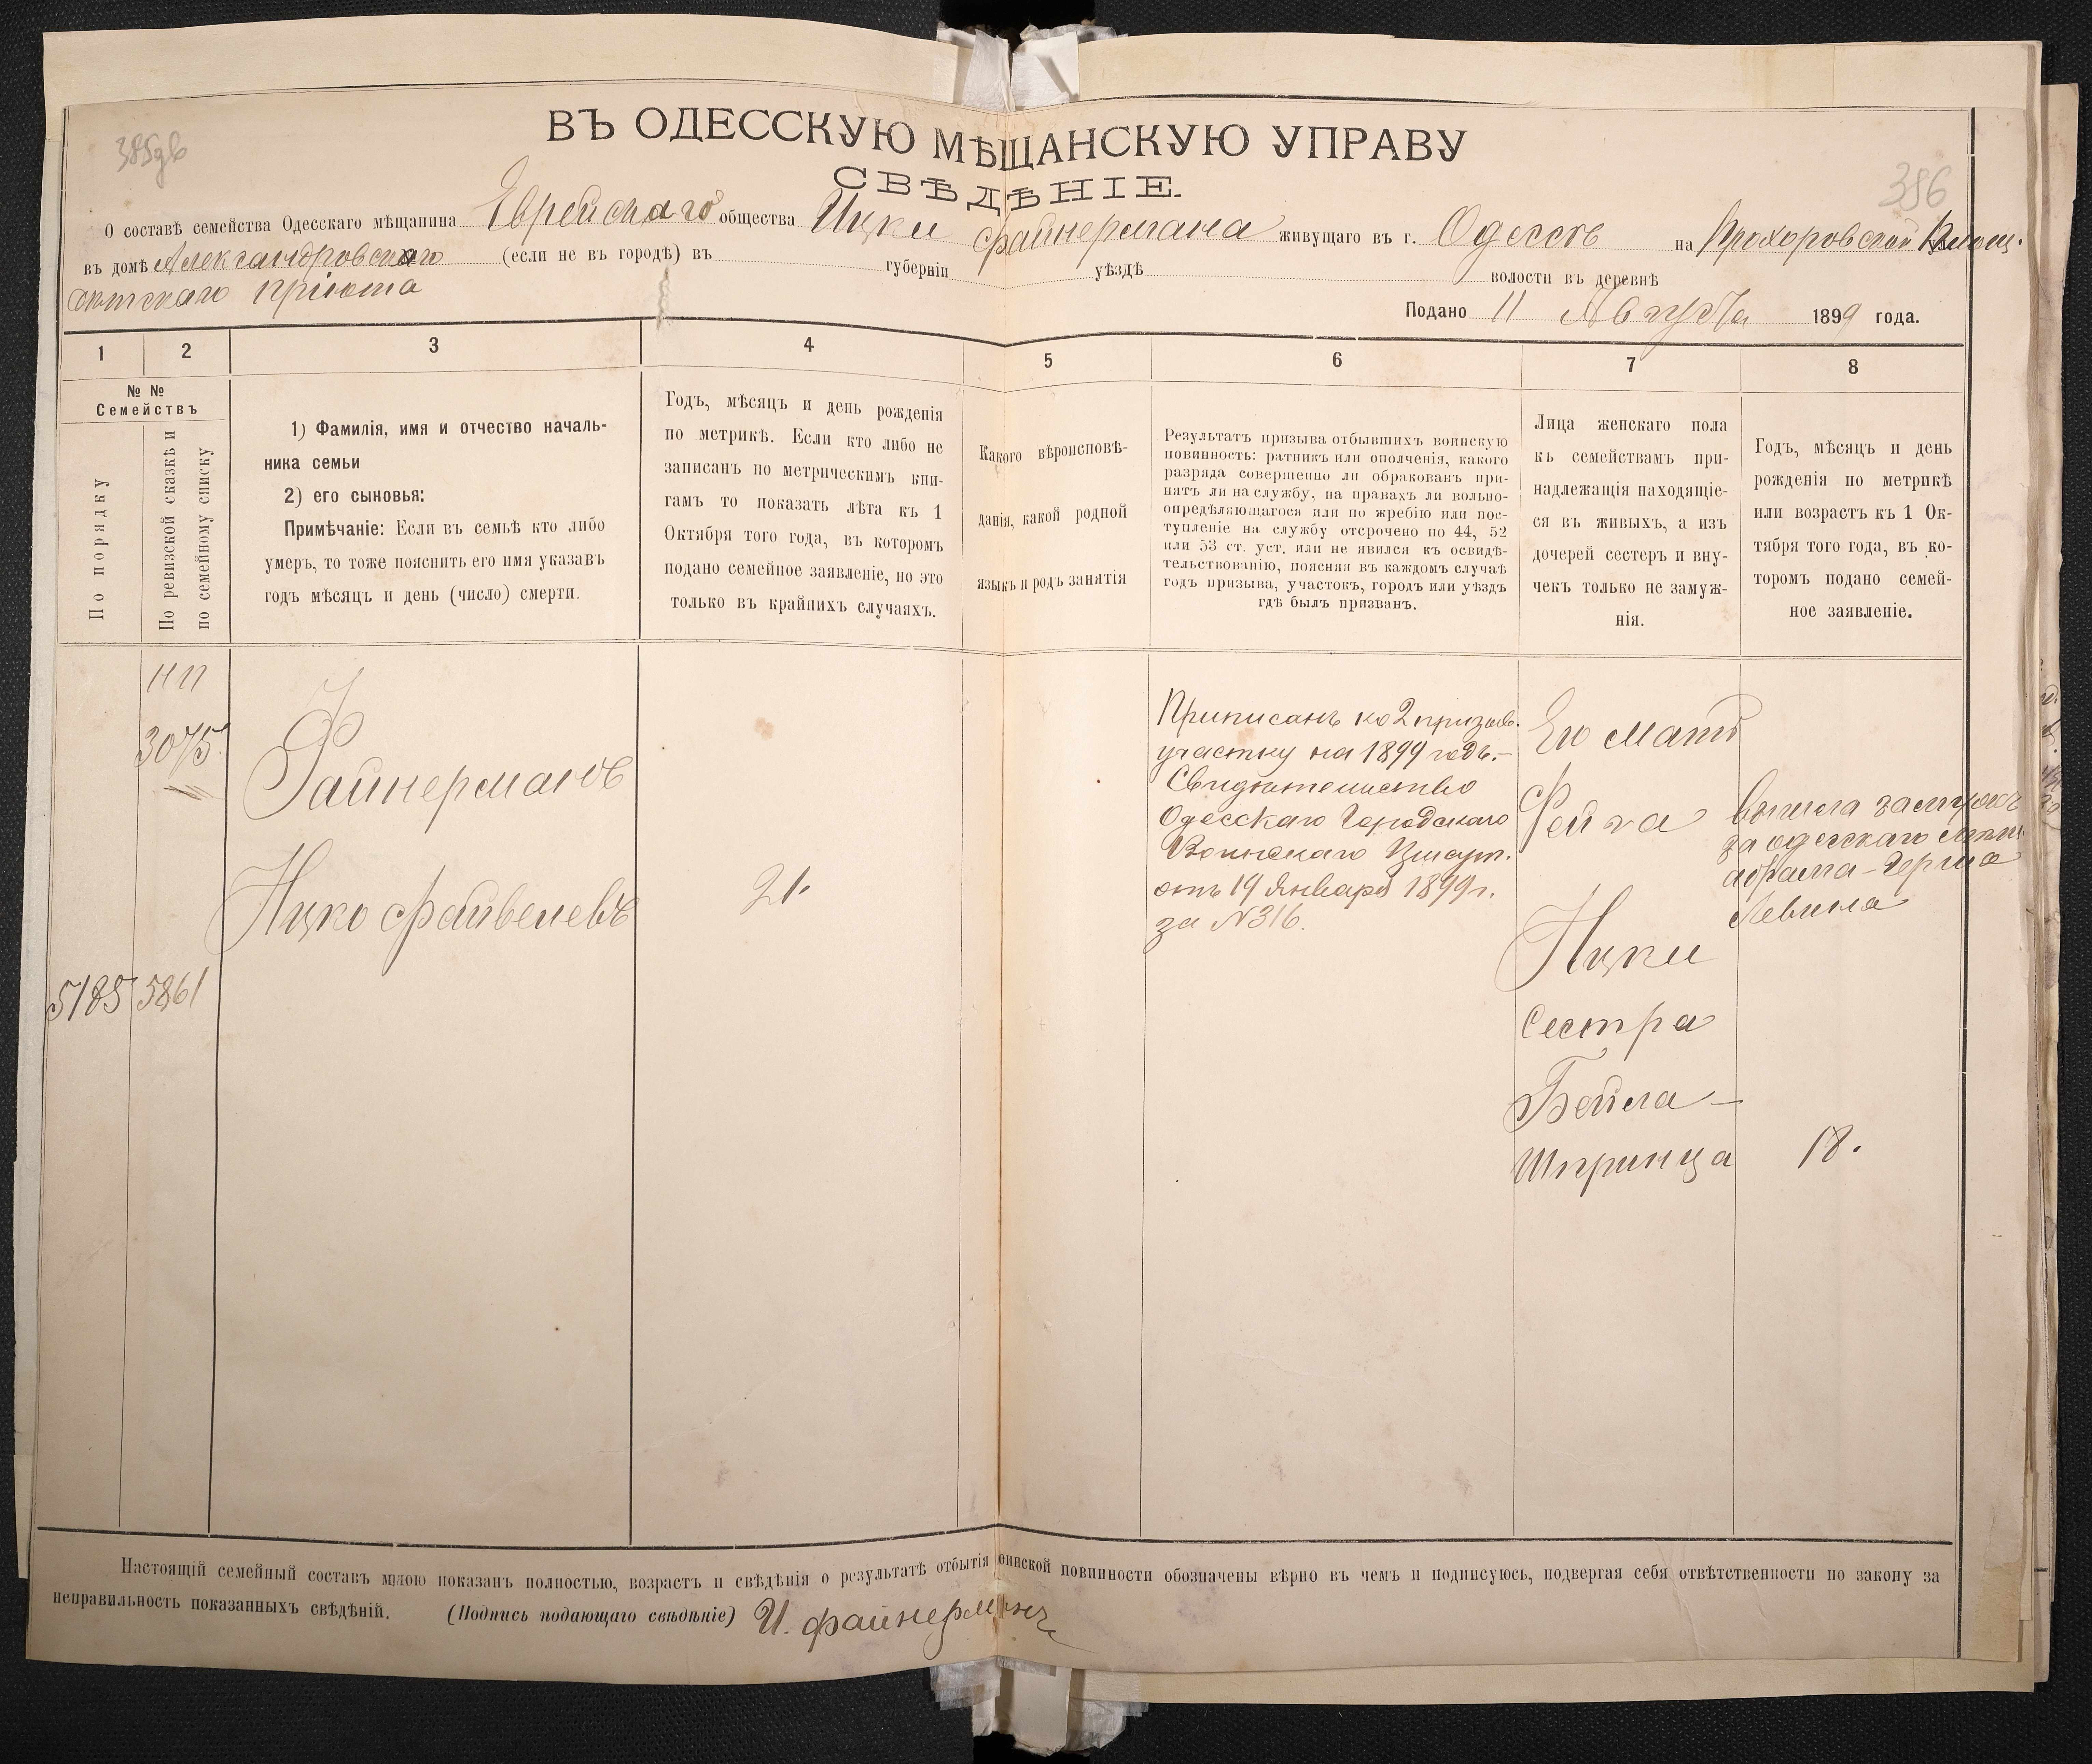 385 об
386
ВЪ ОДЕССКУЮ МѢЩАНСКУЮ УПРАВУ
СВѢДѢНІЕ.
О составѣ семейства Одесскаго мѣщанина Еврейскаго общества Ицки Файнермана живущаго въ г. Одессѣ на Прохоровской площ.
въ домѣ Александровскаго (если не въ городѣ) въ губерніи уѣздѣ волости въ деревнѣ
дѣтскаго пріюта
Подано 11 Августа 1899 года.
1 2 3 4 5 6 7 8
№ №
Семействъ
По порядку
По ревизской сказкѣ и
по семейному списку
1) Фамилія, имя и отчество началь-
ника семьи
2) его сыновья:
Примѣчаніе: Если въ семьѣ кто либо
умеръ, то тоже пояснить его имя указавъ
годъ мѣсяцъ и день (число) смерти.
Годъ, мѣсяцъ и день рожденія
по метрикѣ. Если кто либо не
записанъ по метрическимъ кни-
гамъ то показать лѣта къ 1
Октября того года, въ которомъ
подано семейное заявленіе, но это
только въ крайнихъ случаяхъ.
Какого вѣроисповѣ-
данія, какой родной
языкъ и родъ занятія
Результатъ призыва отбывшихъ воинскую
повинность: ратникъ или ополченія, какого
разряда совершенно ли обракованъ при-
нятъ ли на службу, на правахъ ли вольно-
опредѣляющагося или по жребію или пос-
тупленіе на службу отсрочено по 44, 52
или 53 ст. уст. или не явился къ освидѣ-
тельствованію, поясняя въ каждомъ случаѣ
годъ призыва, участокъ, городъ или уѣздъ
гдѣ былъ призванъ.
Лица женскаго пола
къ семействамъ при-
надлежащія находящіе-
ся въ живыхъ, а изъ
дочерей сестеръ и вну-
чекъ только не замуж-
нія.
Годъ, мѣсяцъ и день
рожденія по метрикѣ
или возрастъ къ 1 Ок-
тября того года, въ ко-
торомъ подано семей-
ное заявленіе.
3075
Файнерманъ
Ицко Файвелевъ
21.
5185 5861
Приписанъ ко 2 призыв.
участку на 1899 годъ. —
Свидѣтельство
Одесскаго Городскаго
Воинскаго Присут.
отъ 19 Января 1899 г.
за N 316.
Его мать
Фейга
вышла замужъ
за одесскаго мѣщ.
Абрама-Герша
Левина
Ицки
Сестра
Бейла —
Шпринца
18.
Настоящій семейный составъ мною показанъ полностью, возрастъ и свѣдѣнія о результатѣ отбытія воинской повинности обозначены вѣрно въ чемъ и подписуюсь, подвергая себя отвѣтственности по закону за
неправильность показанныхъ свѣдѣній. (Подпись подающаго свѣдѣніе) И. Файнерманъ